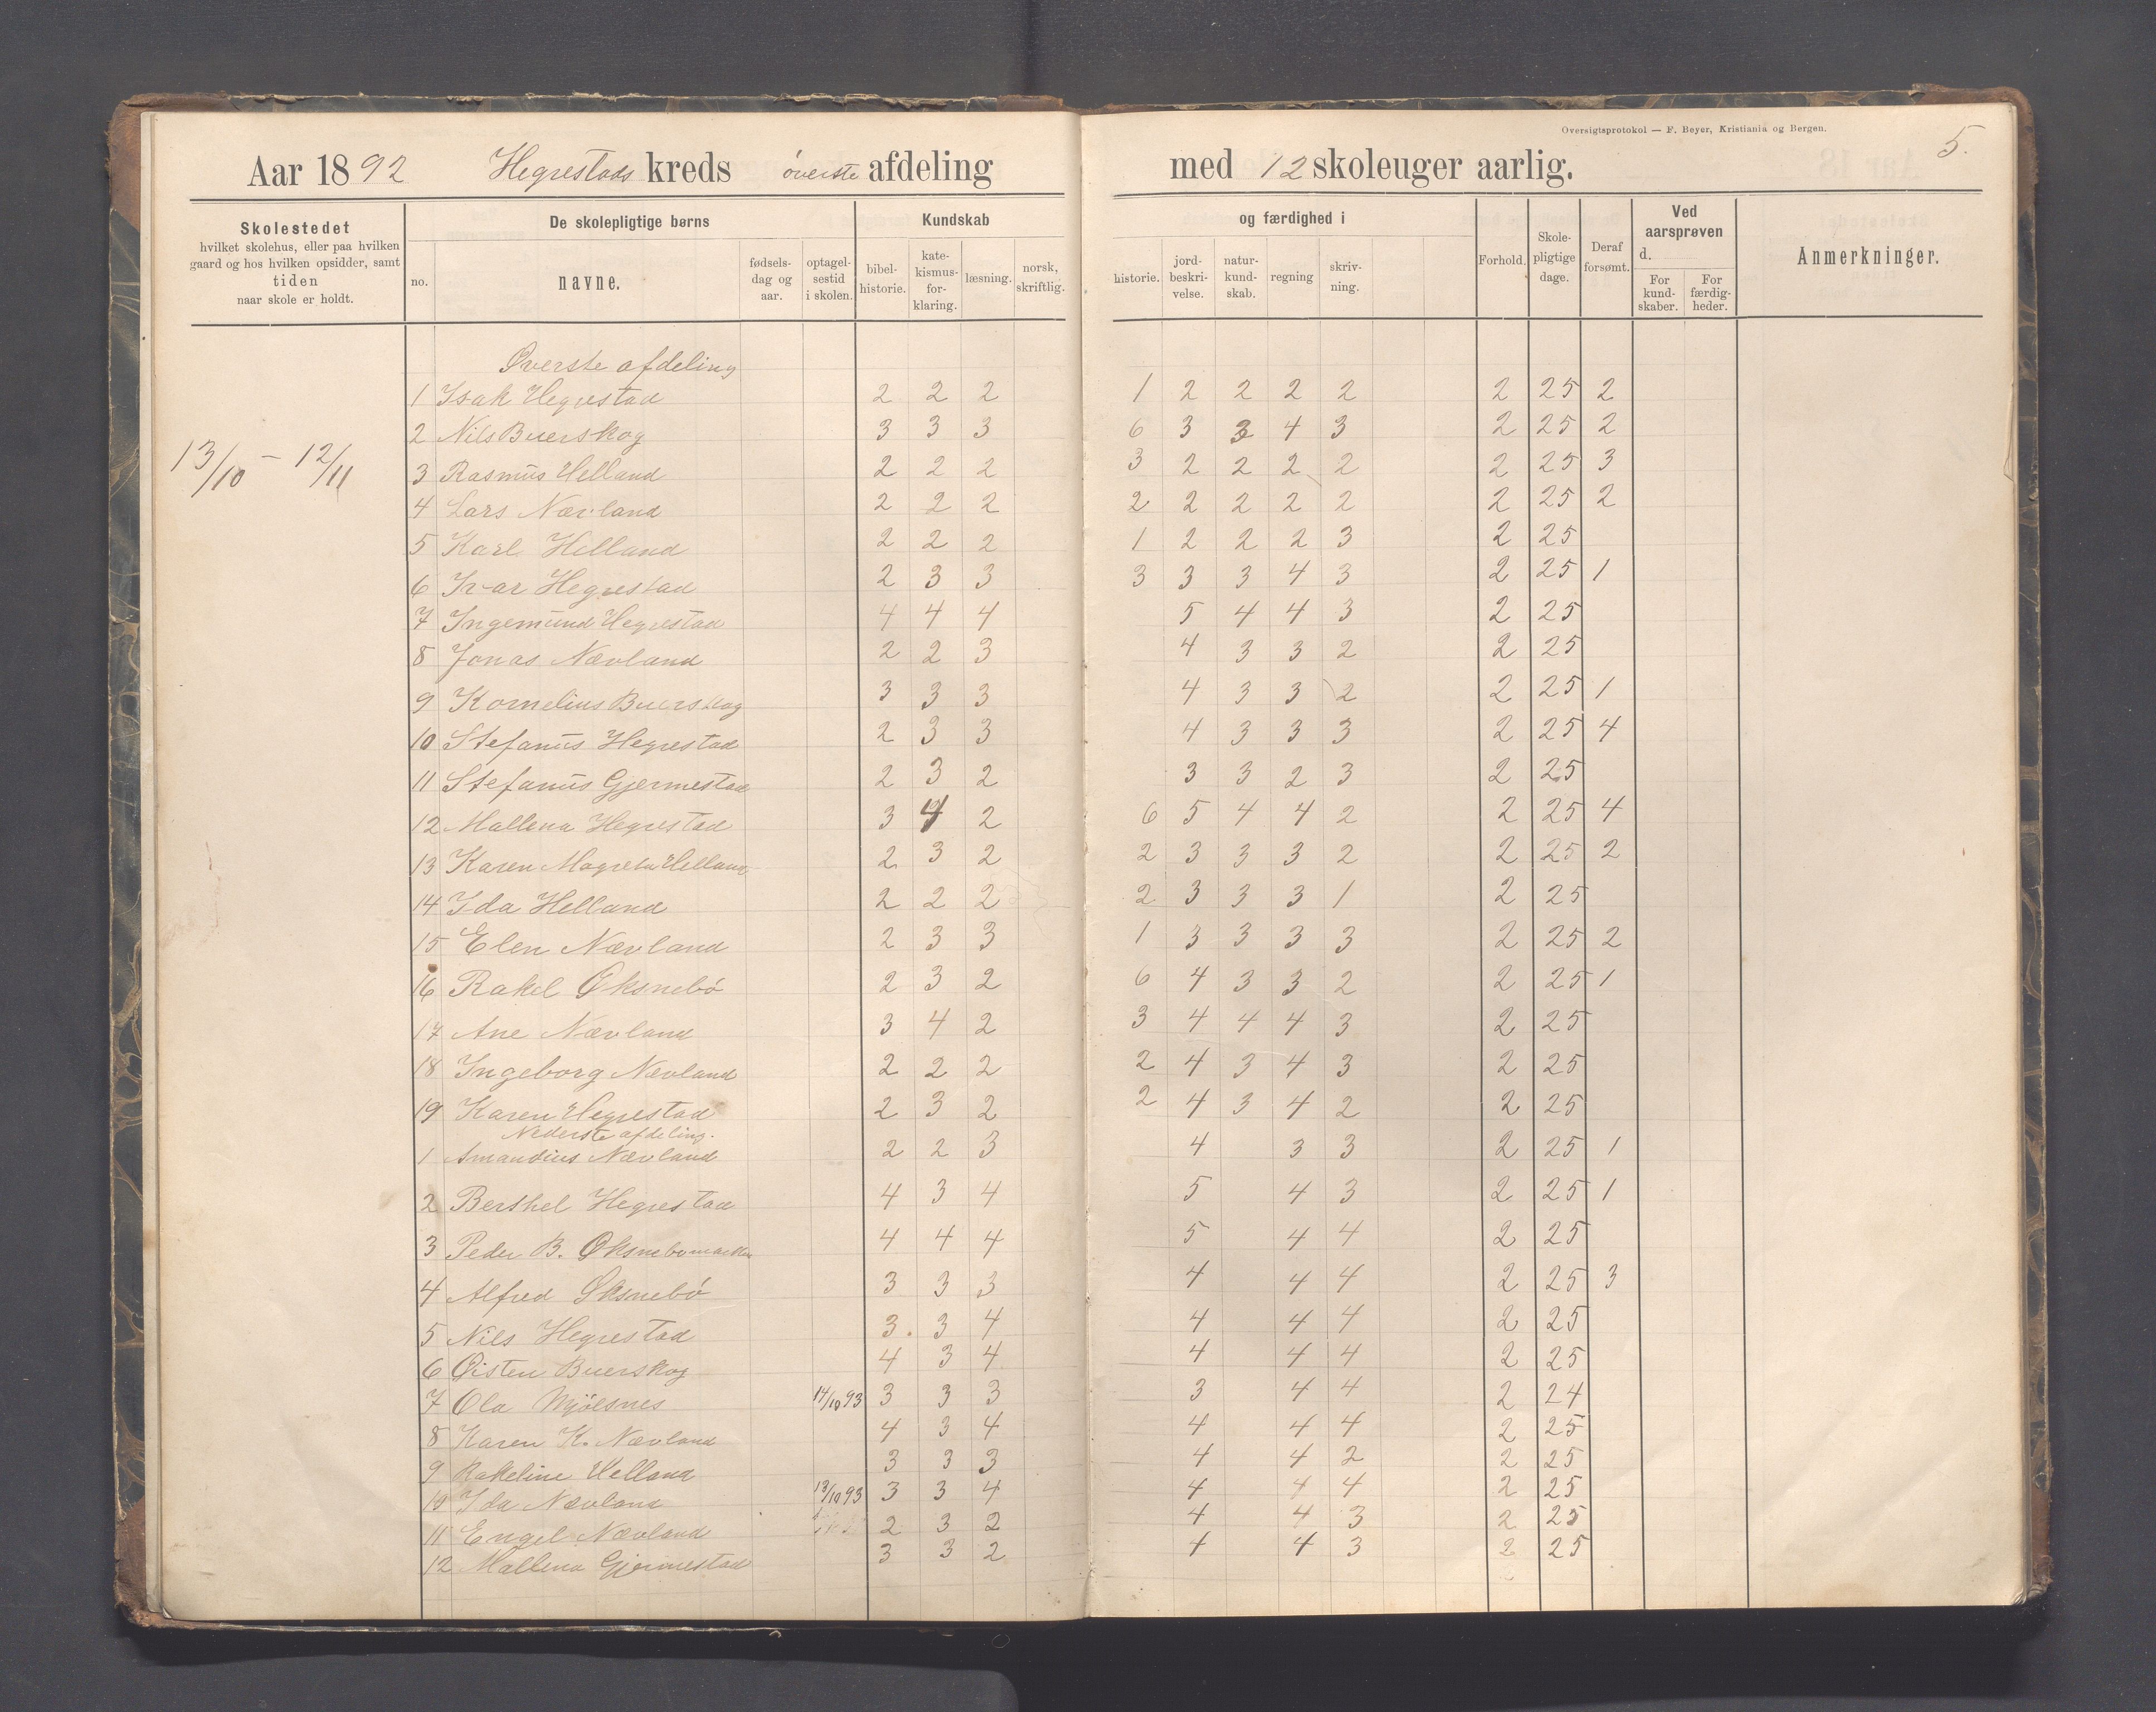 Oversigtsprotokol — F. Beyer, Kristiania og Bergen.
5.
Aar 1892 Hegrestads kreds øverste afdeling med 12 skoleuger aarlig.
Skolestedet hvilket skolehus, eller paa hvilken gaard og hos hvilken opsidder, samt tiden naar skole er holdt.
De skolepligtige børns
no. navne. fødsels-dag og aar. optagel-sestid i skolen.
Kundskab og færdighed i
bibel-historie. kate-kismus-for-klaring. læsning. norsk, skriftlig. historie. jord-beskri-velse. natur-kund-skab. regning skriv-ning.
Forhold. Skole-pligtige dage. Deraf forsømt. Ved aarsprøven d. For kund-skaber. For færdig-heder. Anmerkninger.
13/10 – 12/11
Øverste afdeling
1 Isak Hegrestad 2 2 2 1 2 2 2 2 2 25 2
2 Nils Buerskog 3 3 3 6 3 3 4 3 2 25 2
3 Rasmus Helland 2 2 2 3 2 2 2 2 2 25 3
4 Lars Nævland 2 2 2 2 2 2 2 2 2 25 2
5 Karl Helland 2 2 2 1 2 2 2 3 2 25
6 Ivar Hegrestad 2 3 3 3 3 3 4 3 2 25 1
7 Ingemund Hegrestad 4 4 4 5 4 4 3 2 25
8 Jonas Nævland 2 2 3 4 3 3 2 2 25
9 Kornelius Buerskog 3 3 3 4 3 3 2 2 25 1
10 Stefanus Hegrestad 2 3 3 4 3 3 3 2 25 4
11 Stefanus Gjermestad 2 3 2 3 3 2 3 2 25
12 Mallena Hegrestad 3 4 2 6 5 4 4 2 2 25 4
13 Karen Magreta Helland 2 3 2 2 3 3 3 2 2 25 2
14 Ida Helland 2 2 2 2 3 3 3 1 2 25
15 Elen Nævland 2 3 3 1 3 3 3 3 2 25 2
16 Rakel Øksnebö 2 3 2 6 4 3 3 2 2 25 1
17 Ane Nævland 3 4 2 3 4 4 4 3 2 25
18 Ingeborg Nævland 2 2 2 2 4 3 4 3 2 25
19 Karen Hegrestad 2 3 2 2 4 3 4 2 2 25
Nederste afdeling.
1 Amandius Nævland 2 2 3 4 3 3 2 25 1
2 Berthel Hegrestad 4 3 4 5 4 3 2 25 1
3 Peder B. Øksnebomarken 4 4 4 5 4 4 2 25
4 Alfred Øksnebö 3 3 3 4 4 4 2 25 3
5 Nils Hegrestad 3. 3 4 4 4 4 2 25
6 Øisten Buerskog 4 3 4 4 4 4 2 25
7 Ola Mjölsnes 14/10 93 3 3 3 3 4 4 2 24
8 Karen K. Nævland 4 3 4 4 4 4 2 25
9 Rakeline Helland 3 3 3 4 4 2 2 25
10 Ida Nævland 13/10 93 3 3 4 4 4 4 2 25
11 Engel Nævland 2 3 2 4 4 3 2 25
12 Mallena Gjermestad 3 3 2 4 4 3 2 25